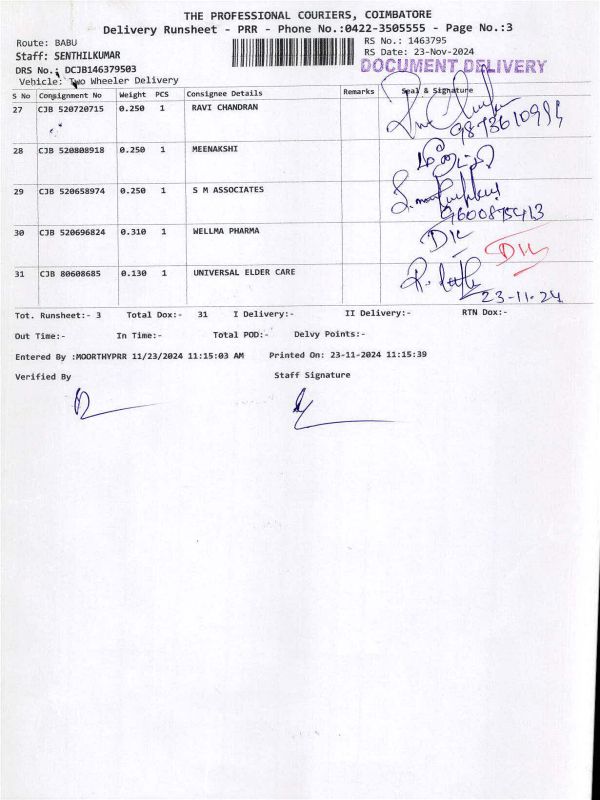 THE PROFESSIONAL COURIERS, COIMBATORE
Delivery Runsheet - PRR - Phone No.:0422-3505555 - Page No.:3
Route: BABU
RS No.: 1463795
Staff: SENTHILKUMAR
RS Date: 23-Nov-2024
DRS No.: DCJB146379503
DOCUMENT DELIVERY
Vehicle: Two Wheeler Delivery
S No Consignment No Weight PCS Consignee Details Remarks Seal & Signature
27 CJB 520720715 0.250 1 RAVI CHANDRAN
28 CJB 520808918 0.250 1 MEENAKSHI
29 CJB 520658974 0.250 1 S M ASSOCIATES
9600875413
30 CJB 520696824 0.310 1 WELLMA PHARMA
31 CJB 80608685 0.130 1 UNIVERSAL ELDER CARE
23-11-24
Tot. Runsheet:- 3 Total Dox:- 31 I Delivery:- II Delivery:- RTN Dox:-
Out Time:- In Time:- Total POD:- Delvy Points:-
Entered By :MOORTHYPRR 11/23/2024 11:15:03 AM Printed On: 23-11-2024 11:15:39
Verified By Staff Signature